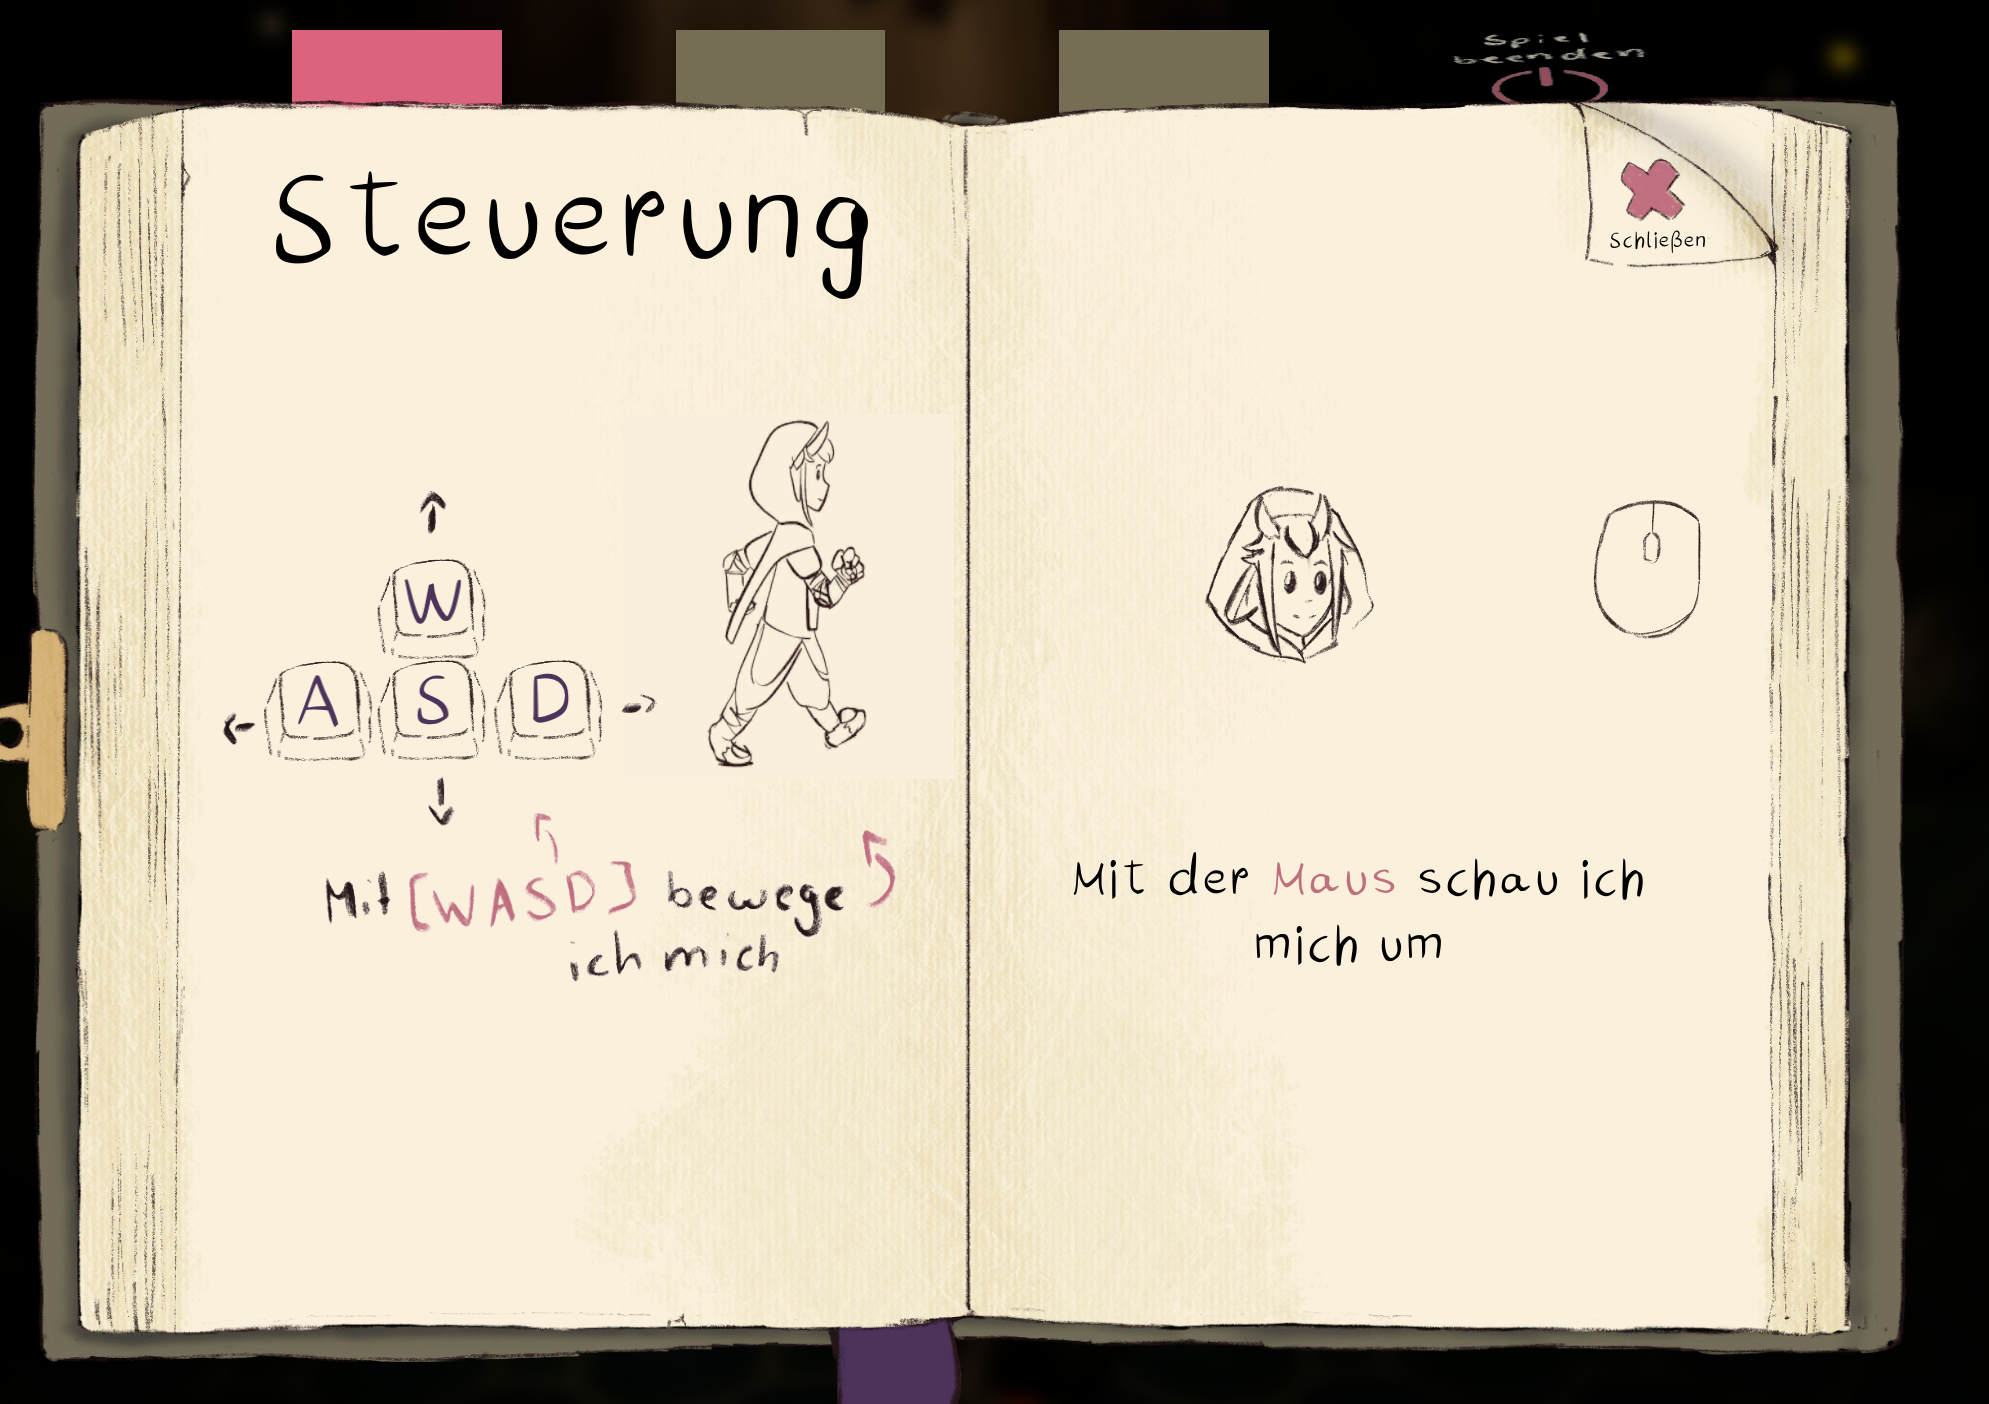 Spiel
beenden
Steuerung
Schließen
W
A S D
Mit [WASD] bewege
ich mich
Mit der Maus schau ich
mich um